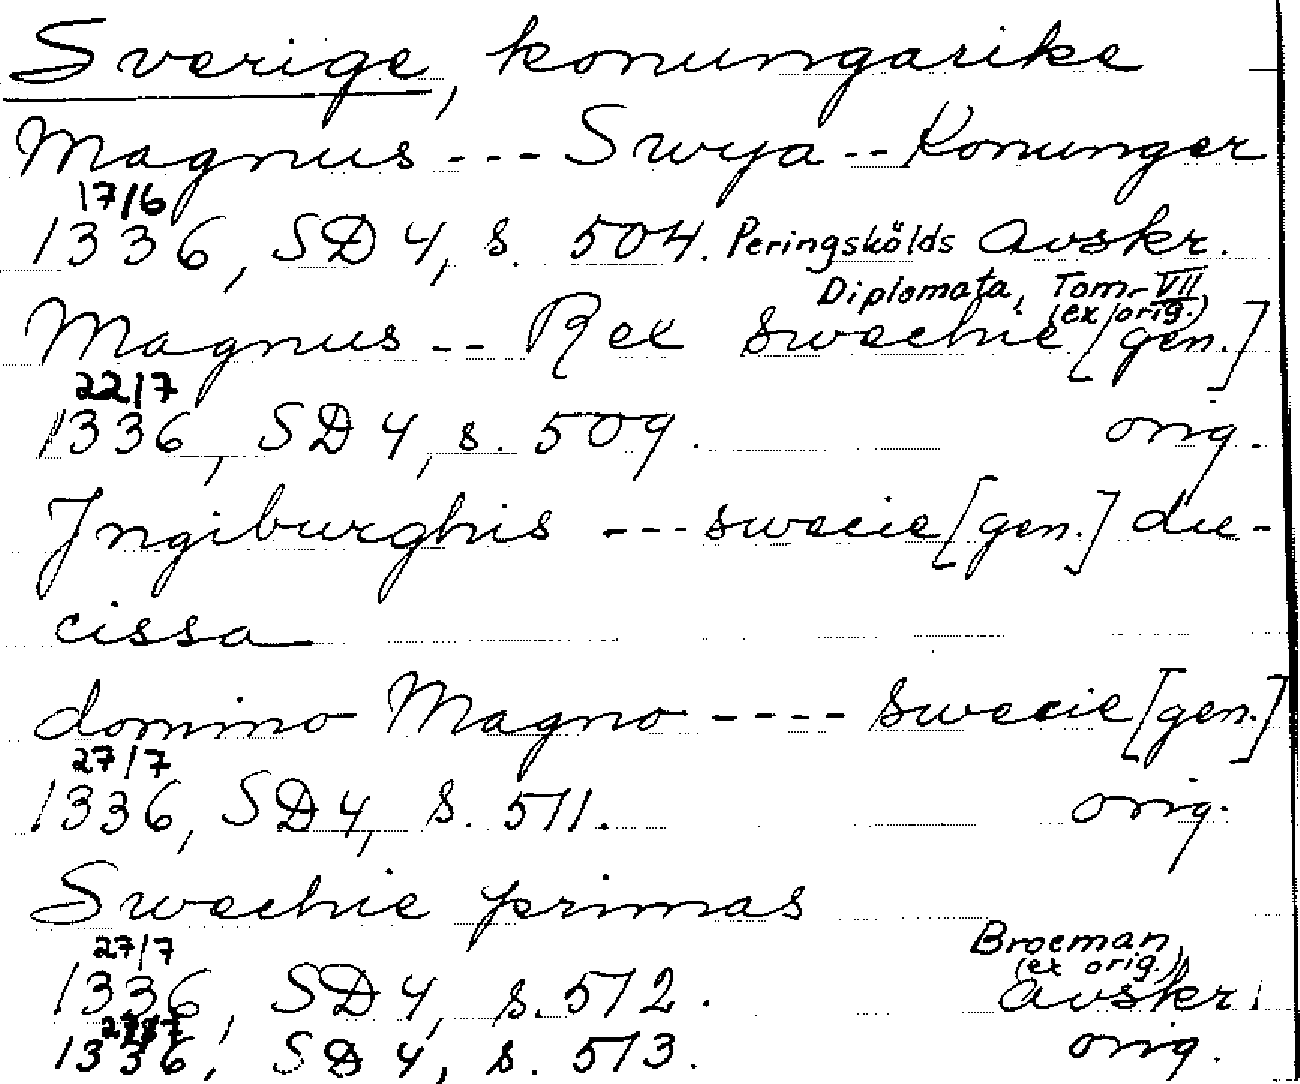 Sverige, konungarike
Magnus --- Swya -- Konunger
17/6
1336, SD 4, s. 504. Peringskölds Avskr.
Diplomata, Tom. VII
(ex orig.)
Magnus -- Rex Swechie [gen.]
22/7
1336, SD 4, s. 509. orig.
Ingiburghis --- swecie [gen.] du-
cissa
domino Magno ---- Swecie [gen.]
27/7
1336, SD 4, s. 511. orig.
Swechie primas
27/7
Broeman
(ex orig.)
1336, SD 4, s. 512. avskr.
1336, SD 4, s. 513. orig.